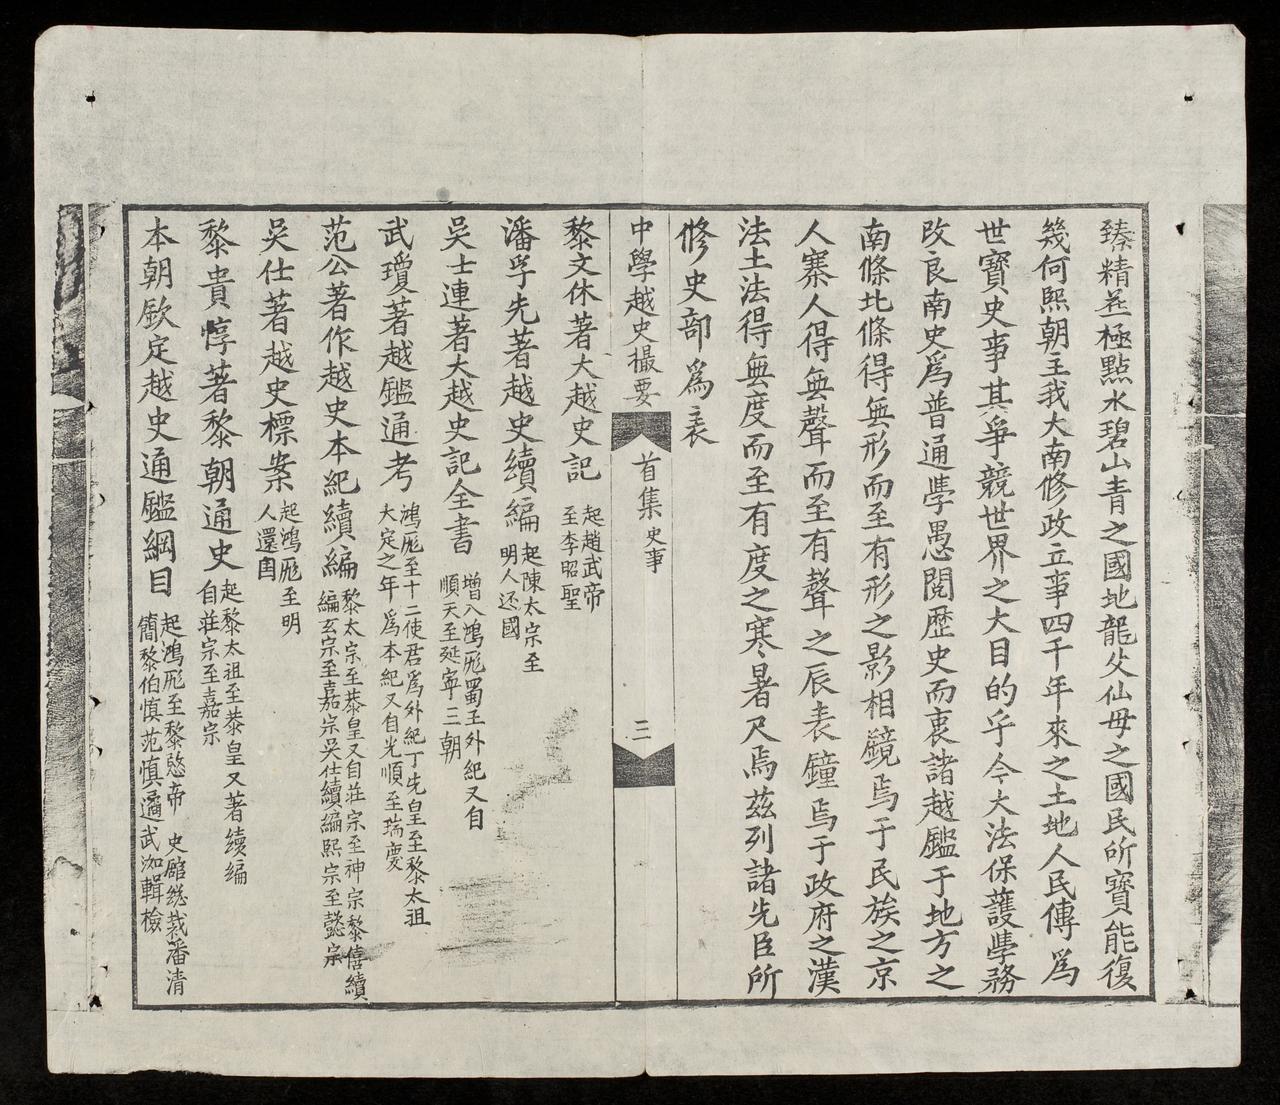 臻精並極點水碧山青之國地龍父仙母之國民所寶能復
幾何熙朝主我大南修政立事四千年來之土地人民傳為
世寶史事其爭競世界之大目的乎今大法保護學務
改良南史為普通學愚閱歷史而衷諸越鑑于地方之
南條北條得無形而至有形之影相鏡焉于民族之京
人寨人得無聲而至有聲之辰表鐘焉于政府之漢
法土法得無度而至有度之寒暑尺焉茲列諸先臣所
修史部為表
中學越史撮要 首集 史事 三
黎文休著大越史記 起趙武帝
至李昭聖
潘孚先著越史續編 起陳太宗至
明人还國
吳士連著大越史記全書 增入鴻厖蜀王外紀又自
順天至延寧三朝
武瓊著越鑑通考 鴻厖至十二使君為外紀丁先皇至黎太祖
大定之年為本紀又自光順至瑞慶
范公著作越史本紀續編 黎太宗至恭皇又自莊宗至神宗黎僖續
編玄宗至嘉宗吳仕續編熙宗至懿宗
吳仕著越史標案 起鴻厖至明
人還國
黎貴惇著黎朝通史 起黎太祖至恭皇又著續編
自莊宗至嘉宗
本朝欽定越史通鑑綱目 起鴻厖至黎愍帝 史館總裁潘清
簡黎伯慎范慎遹武泇輯檢